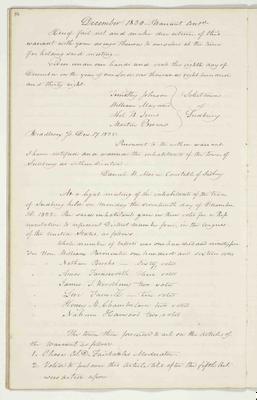 December 1838 - Warrant Cond.
Hereof fail not and make due return of this
warrant with your doings thereon to ourselves at the time
for holding said meeting.
Given under our hands and seals this eighth day of
December in the year of our Lord one thousand eight hundred
and thirty eight.
Timothy Johnson
Selectmen
William
of
Sudbury
Martin
Sudbury Dec. 17. 1838.
Pursuant to the within warrant
I have notified and warned the inhabitants of the Town of
Sudbury as within directed
Daniel Constable of Sudbury
At a legal meeting of the inhabitants of the town
of Sudbury held on Monday the seventeenth day of December
1838. The said inhabitants gave in their votes for a Rep
resentative to represent District number four, in the Congress
of the United States, as follows
Whole number of votes was one hundred
For Hon William Parmenter one hundred and sixteen
Nathan Brooks - Sixty votes
Amos Farnsworth three votes
James two votes
Farwell - two votes
Henry M. Chamberlain two votes
Nahum Harwood two votes
The town then proceeded to act on the articles of
the Warrant as follows
1. Chose Moderator.
2. Voted to put over this article till after the fifth Art
was acted upon